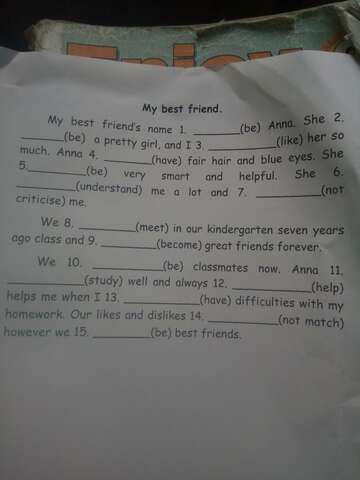 Enjoy
My best friend.
My best friend's name 1. ________(be) Anna. She 2.
________(be) a pretty girl, and I 3. __________(like) her so
much. Anna 4. ________(have) fair hair and blue eyes. She
5.__________(be) very smart and helpful. She 6.
__________(understand) me a lot and 7. ___________(not
criticise) me.
We 8. __________(meet) in our kindergarten seven years
ago class and 9. __________(become) great friends forever.
We 10. ____________(be) classmates now. Anna 11.
__________(study) well and always 12. ______________(help)
helps me when I 13. ______________(have) difficulties with my
homework. Our likes and dislikes 14. _____________(not match)
however we 15. __________(be) best friends.